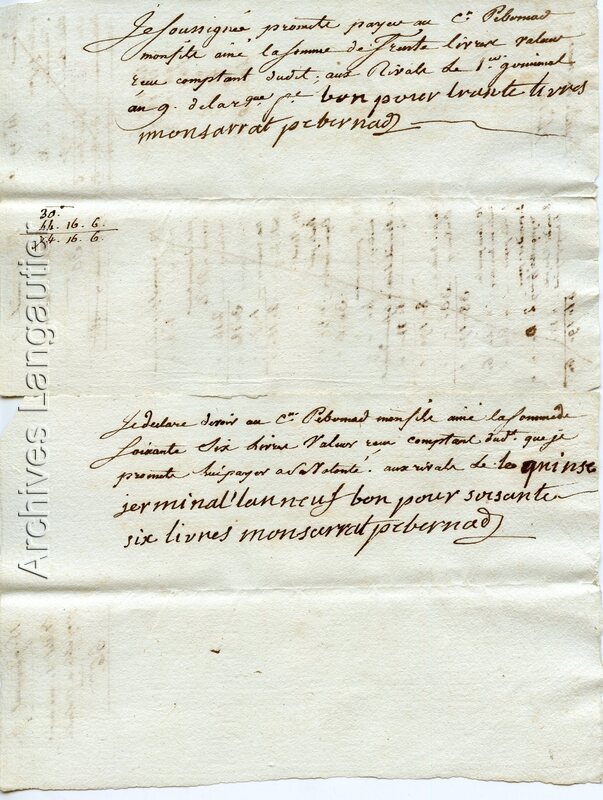 Je soussignée, promets payer au Cn. Pebernad
mon fils ainé la somme de Trente livres valeur
reue comptant dudit, aux Rivals le 1er germinal
an 9. de la rque fse bon pour trante livres
monsarrat pebernad
30.
44. 16. 6.
74. 16. 6.
Je declare devoir au Cn. Pebernad mon fils ainé la somme de
soixante six livres valeur reue comptant dudt. que je
promets lui payer a sa volonté. aux rivals le le quinse
jerminal l'anneuf bon pour soisante
six livres monsarrat pebernad
Archives Langautier